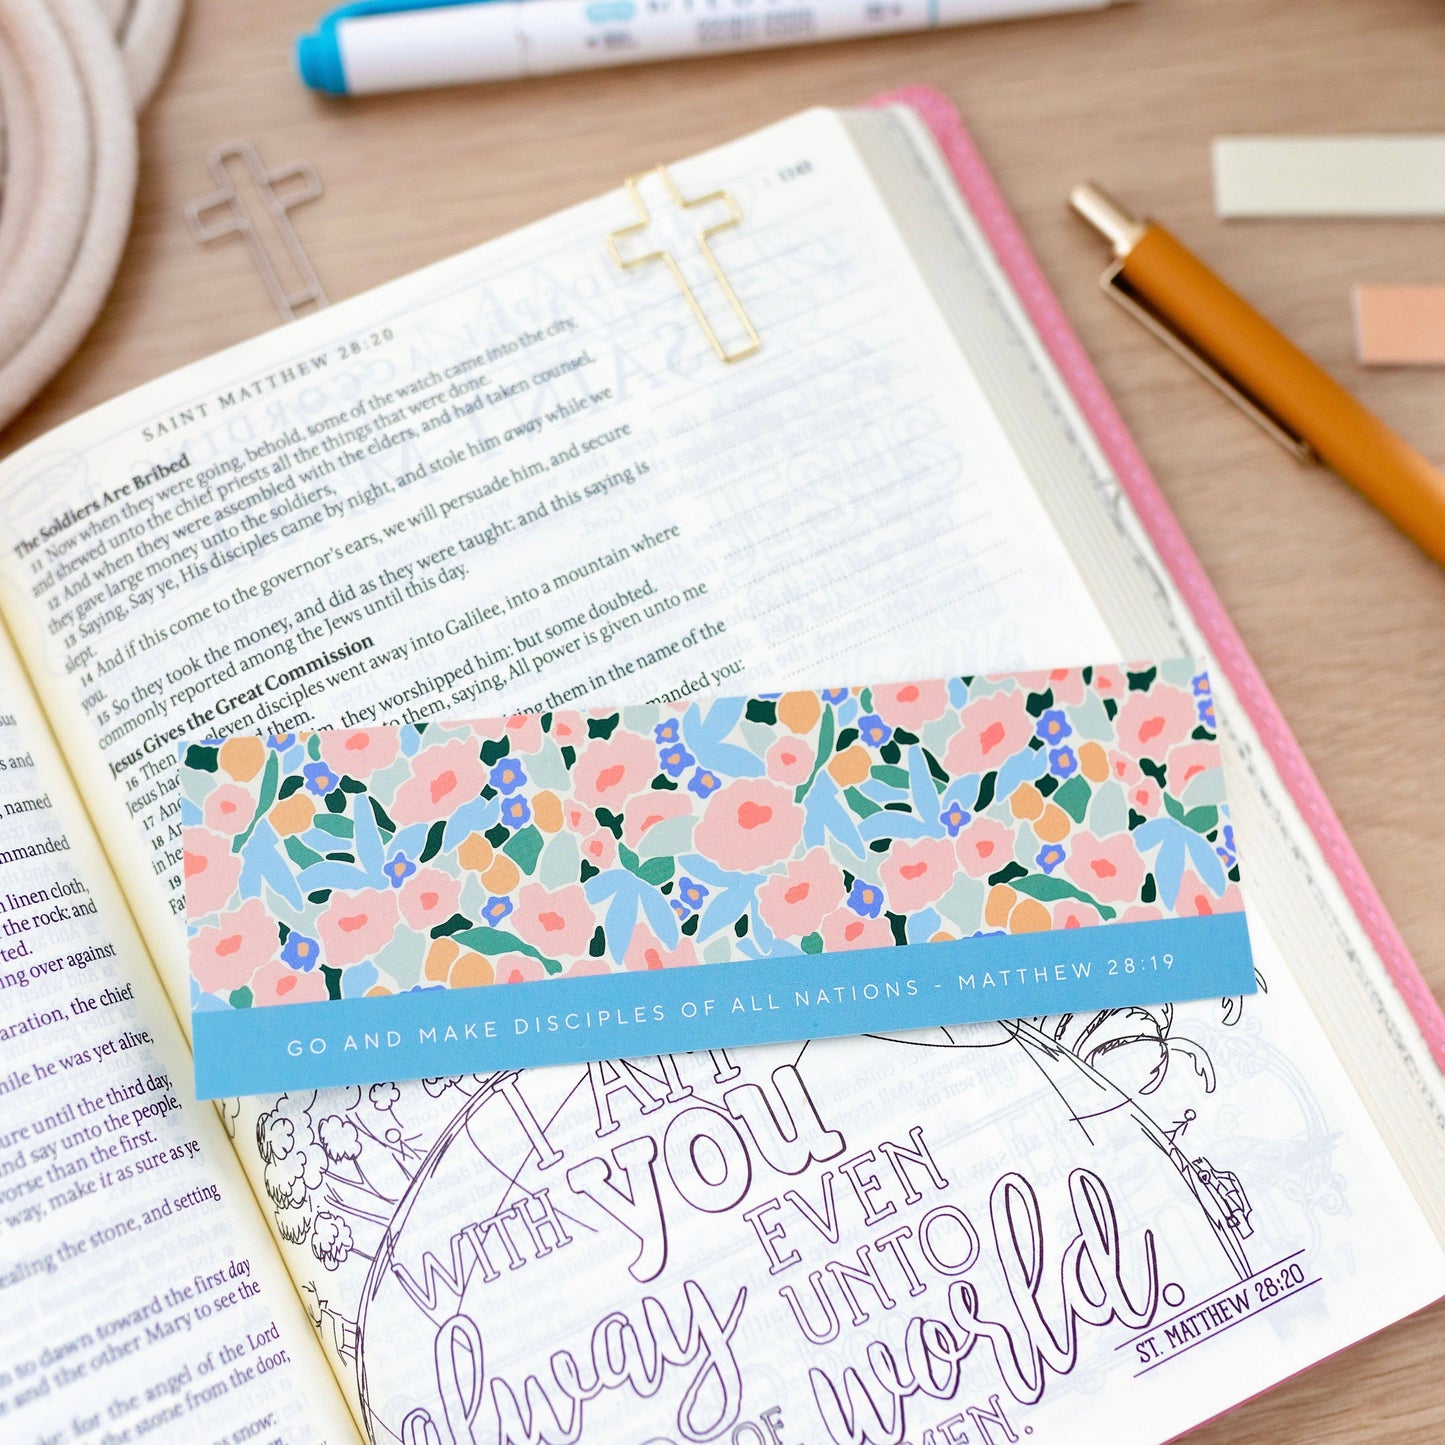 SAINT MATTHEW 28:20
1143
The Soldiers Are Bribed
11 Now when they were going, behold, some of the watch came into the city,
and shewed unto the chief priests all the things that were done.
12 And when they were assembled with the elders, and had taken counsel,
they gave large money unto the soldiers,
13 Saying, Say ye, His disciples came by night, and stole him away while we
slept.
14 And if this come to the governor's ears, we will persuade him, and secure
you.
15 So they took the money, and did as they were taught: and this saying is
commonly reported among the Jews until this day.
Jesus Gives the Great Commission
16 Then eleven disciples went away into Galilee, into a mountain where
Jesus had ed them.
17 And him, they worshipped him: but some doubted.
18 An to them, saying, All power is given unto me
in hea
19 ing them in the name of the
Fat manded you:
GO AND MAKE DISCIPLES OF ALL NATIONS - MATTHEW 28:19
I AM
WITH you
alway EVEN
UNTO
world.
OF
MEN.
ST. MATTHEW 28:20
s and
, named
mmanded
n linen cloth,
the rock: and
ted.
ing over against
aration, the chief
hile he was yet alive,
ure until the third day,
nd say unto the people,
worse than the first.
way, make it as sure as ye
ealing the stone, and setting
n to dawn toward the first day
e and the other Mary to see the
ke: for the angel of the Lord
d the stone from the door,
s snow: